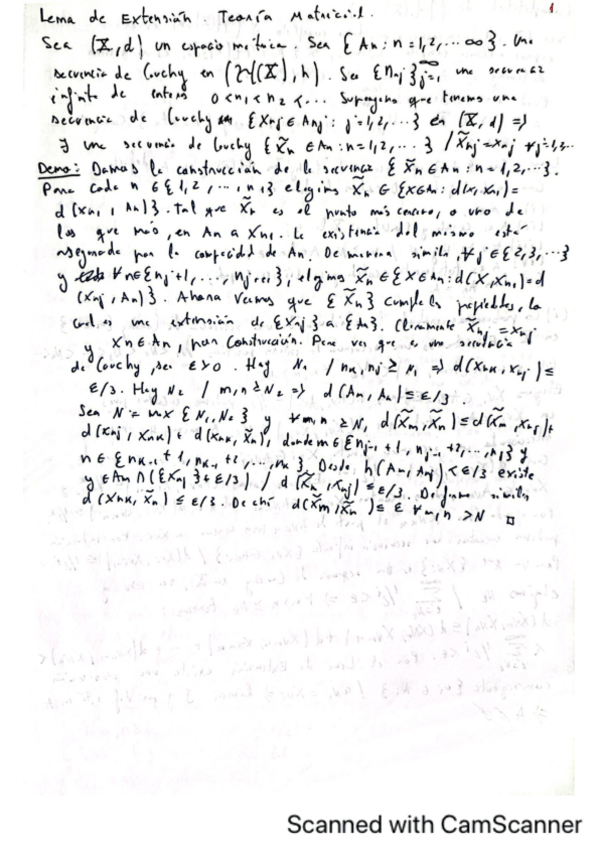 Lema de Extensión Teoría Matricial. 1
Sea (X,d) un espacio métrico. Sea {An : n=1,2,... ∞}. Una
secuencia de Cauchy en (H(X), h). Sea {nj}∞j=1 una secuencia
infinita de enteros 0<n1<n2<... Supongamos que tenemos una
secuencia de Cauchy en {Xnj ∈ Anj : j=1,2,...} en (X,d) =>
∃ una secuencia de Cauchy {x̃n ∈ An : n=1,2,...} / x̃nj = xnj ∀j=1,2,...
Demo: Damos la construcción de la secuencia {x̃n ∈ An : n=1,2,...}.
Para cada n ∈ {1,2,...,n1} elegimos x̃n ∈ {x∈An : d(x,xn1)=
d(xn1, An)}. Tal que x̃n es el punto más cercano, o uno de
los que más, en An a xn1. La existencia del mismo está
asegurada por la compacidad de An. De manera similar, ∀j∈{2,3,...}
y ∀n∈{nj+1,...,nj+1}, elegimos x̃n∈{x∈An : d(x,xnj)=d
(xnj, An)}. Ahora veamos que {x̃n} cumple las propiedades, la
cual es una extensión de {xnj} a {An}. Claramente x̃nj = xnj
y xn∈An, por construcción. Para ver que es una secuencia
de Cauchy, sea ε>0. Hay N1 / nk, nj ≥ N1 => d(xnk, xnj) ≤
ε/3. Hay N2 / m,n ≥ N2 => d(Am, An) ≤ ε/3
Sea N = max {N1, N2} y ∀m,n ≥ N, d(x̃m, x̃n) ≤ d(x̃m, xnj)+
d(xnj, xnk)+ d(xnk, x̃n), donde m∈{nj-1+1, nj-1+2,...,nj} y
n∈{nk-1+1, nk-1+2,...,nk}. Desde h(Am, Anj)<ε/3 existe
y∈Am∩({xnj}+ε/3) / d(x̃m, xnj) ≤ ε/3. De forma similar
d(xnk, x̃n) ≤ ε/3. De ahí d(x̃m, x̃n) ≤ ε ∀m,n >N □
Scanned with CamScanner